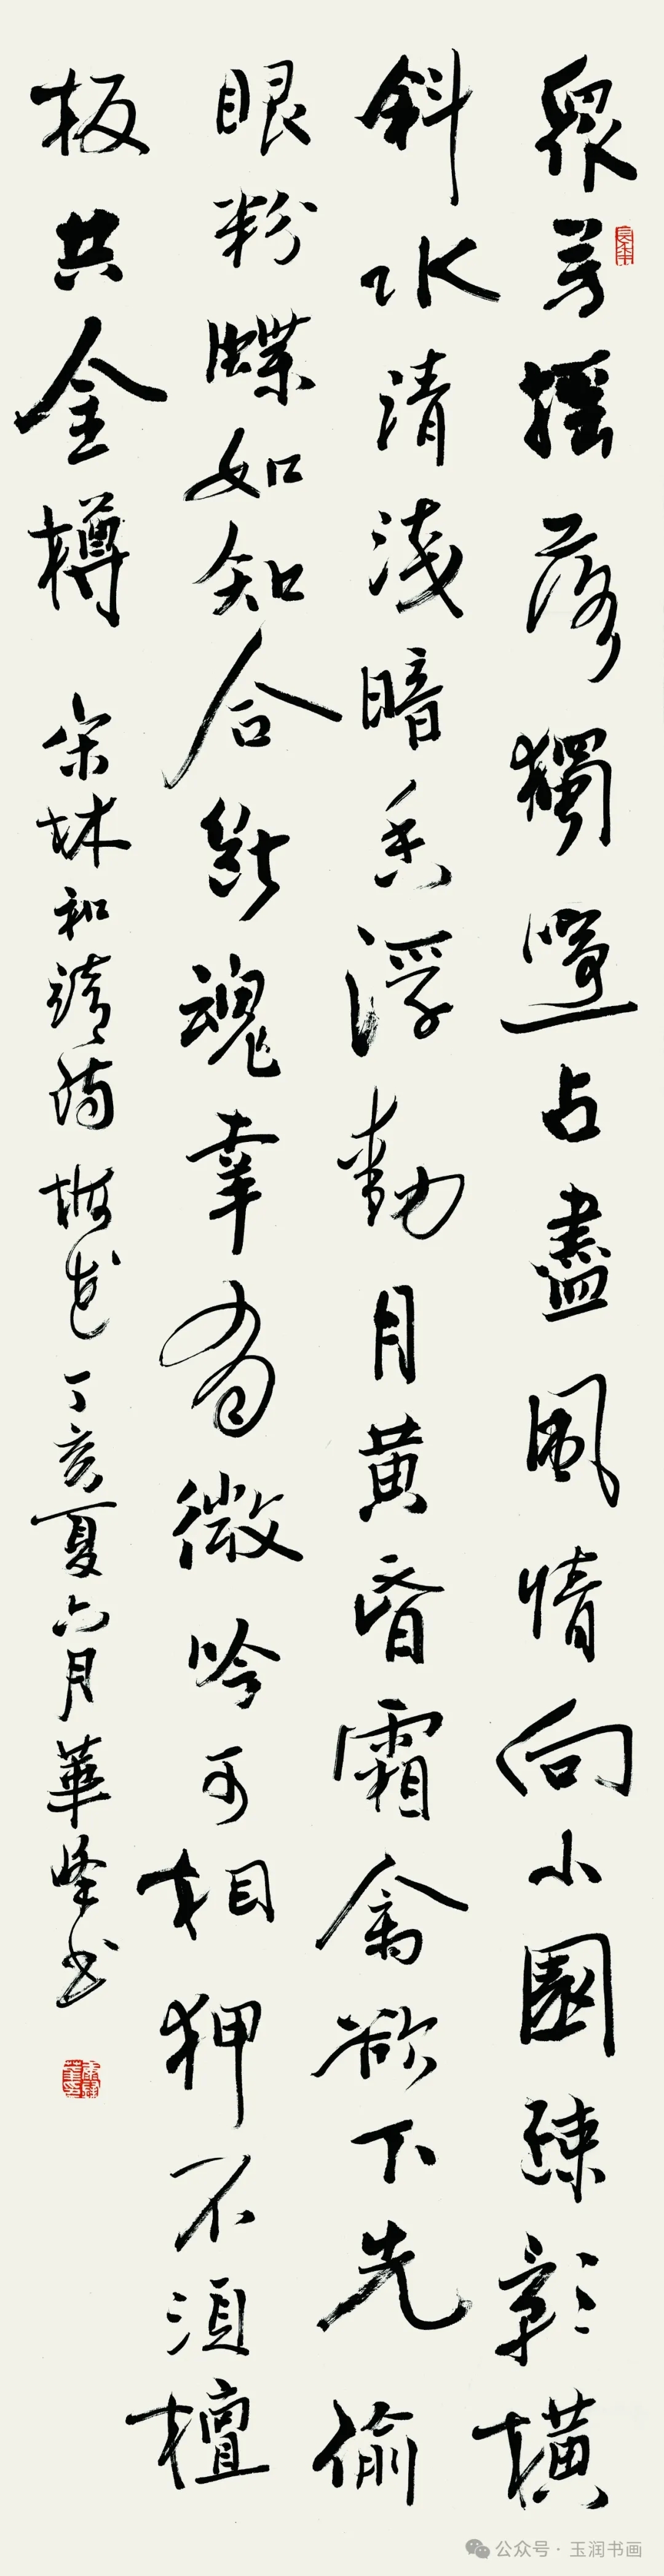 眾芳搖落獨占盡風情向小園疎影橫
斜水清淺暗香浮動月黃昏霜禽欲下先偷
眼粉蝶如知合斷魂幸有微吟可相狎不須檀
板共金樽 宋林和靖詩梅花 丁亥夏六月華峰書
公众号·玉润书画